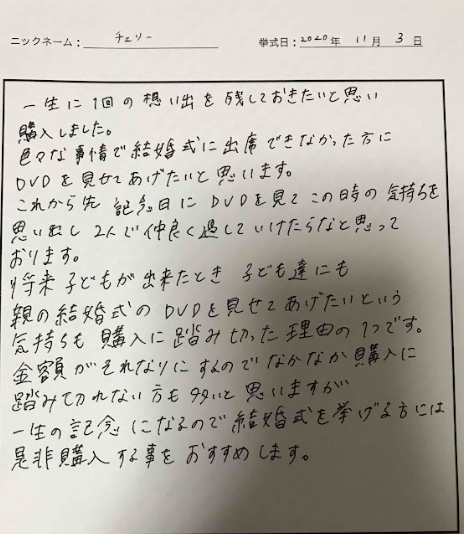 ニックネーム: チェリー 挙式日: 2020年 11月 3日
一生に1回の想い出を残しておきたいと思い
購入しました。
色々な事情で結婚式に出席できなかった方に
DVDを見せてあげたいと思います。
これから先 記念日にDVDを見てこの時の気持ちを
思い出し 2人で仲良く過していけたらなと思って
おります。
将来 子どもが出来たとき 子ども達にも
親の結婚式のDVDを見せてあげたいという
気持ちも購入に踏み切った理由の1つです。
金額がそれなりにするのでなかなか購入に
踏み切れない方も多いと思いますが
一生の記念になるので結婚式を挙げる方には
是非購入する事をおすすめします。